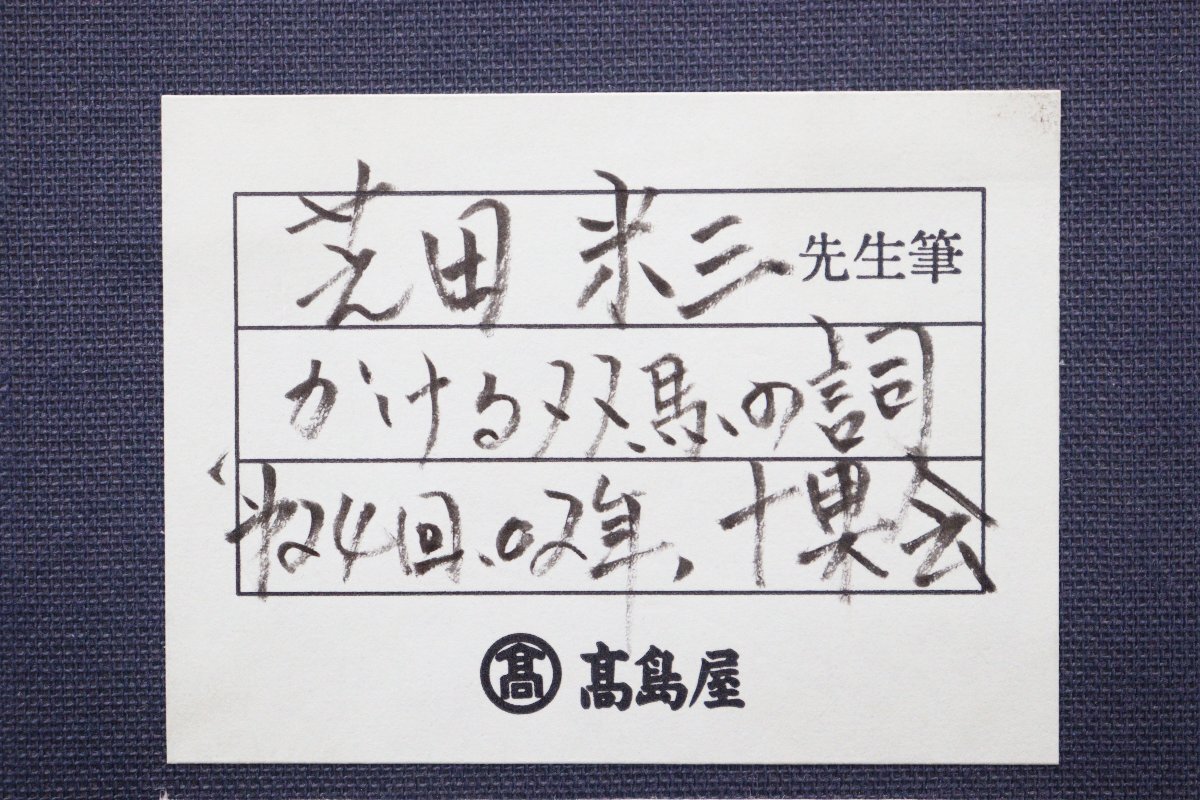 芝田 米三 先生筆
かける双馬の詞
第24回、02年、十果会
髙 髙島屋